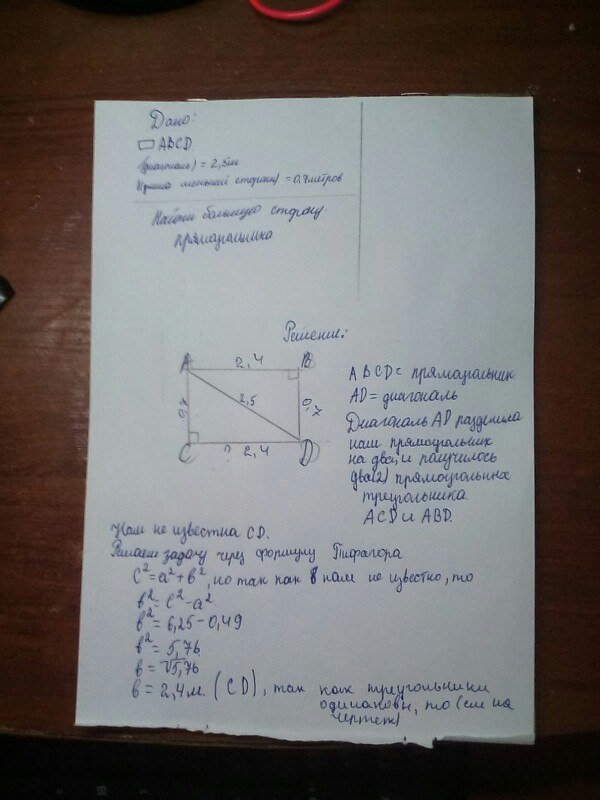 Дано:
▭ ABCD.
(диагональ) = 2,5м
длина меньшей стороны = 0.7метров
Найти большую сторону
прямоугольника
Решение:
A 2,4 B
0,7 2,5 0,7
C ? 2,4 D
ABCD = прямоугольник
AD = диагональ
Диагональ AD разделила
наш прямоугольник
на два, и получилось
два(2) прямоугольных
треугольника
ACD и ABD.
Нам не известна CD.
Решаем задачу через формулу Пифагора
c² = a² + b², но так как b нам не известно, то
b² = c² - a²
b² = 6,25 - 0,49
b² = 5,76
b = √5,76
b = 2,4 м. (CD), так как треугольники
одинаковы, то (см на
чертеж)